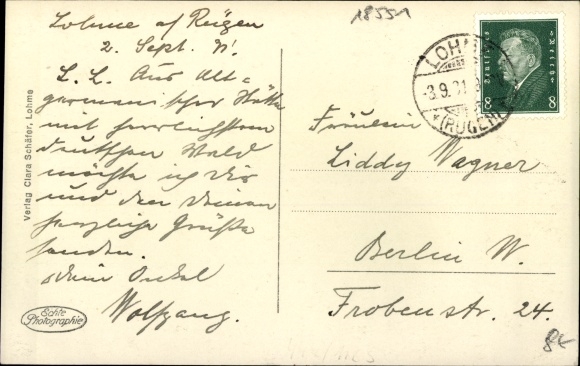 18551
Lohme a/ Rügen
2. Sept. 31.
L. L. Aus Alt-
germanischer Stätte
mit herrlichstem
deutschen Wald
möchte ich Dir
und den Deinen
herzliche Grüße
senden.
Dein Onkel
Wolfgang.
Verlag Clara Schäfer, Lohme
Echte
Photographie
Deutsches Reich
8 8
LOHME
3.9.31
(RÜGEN)
Fräulein
Liddy Wagner
Berlin W.
Frobenstr. 24.
8€